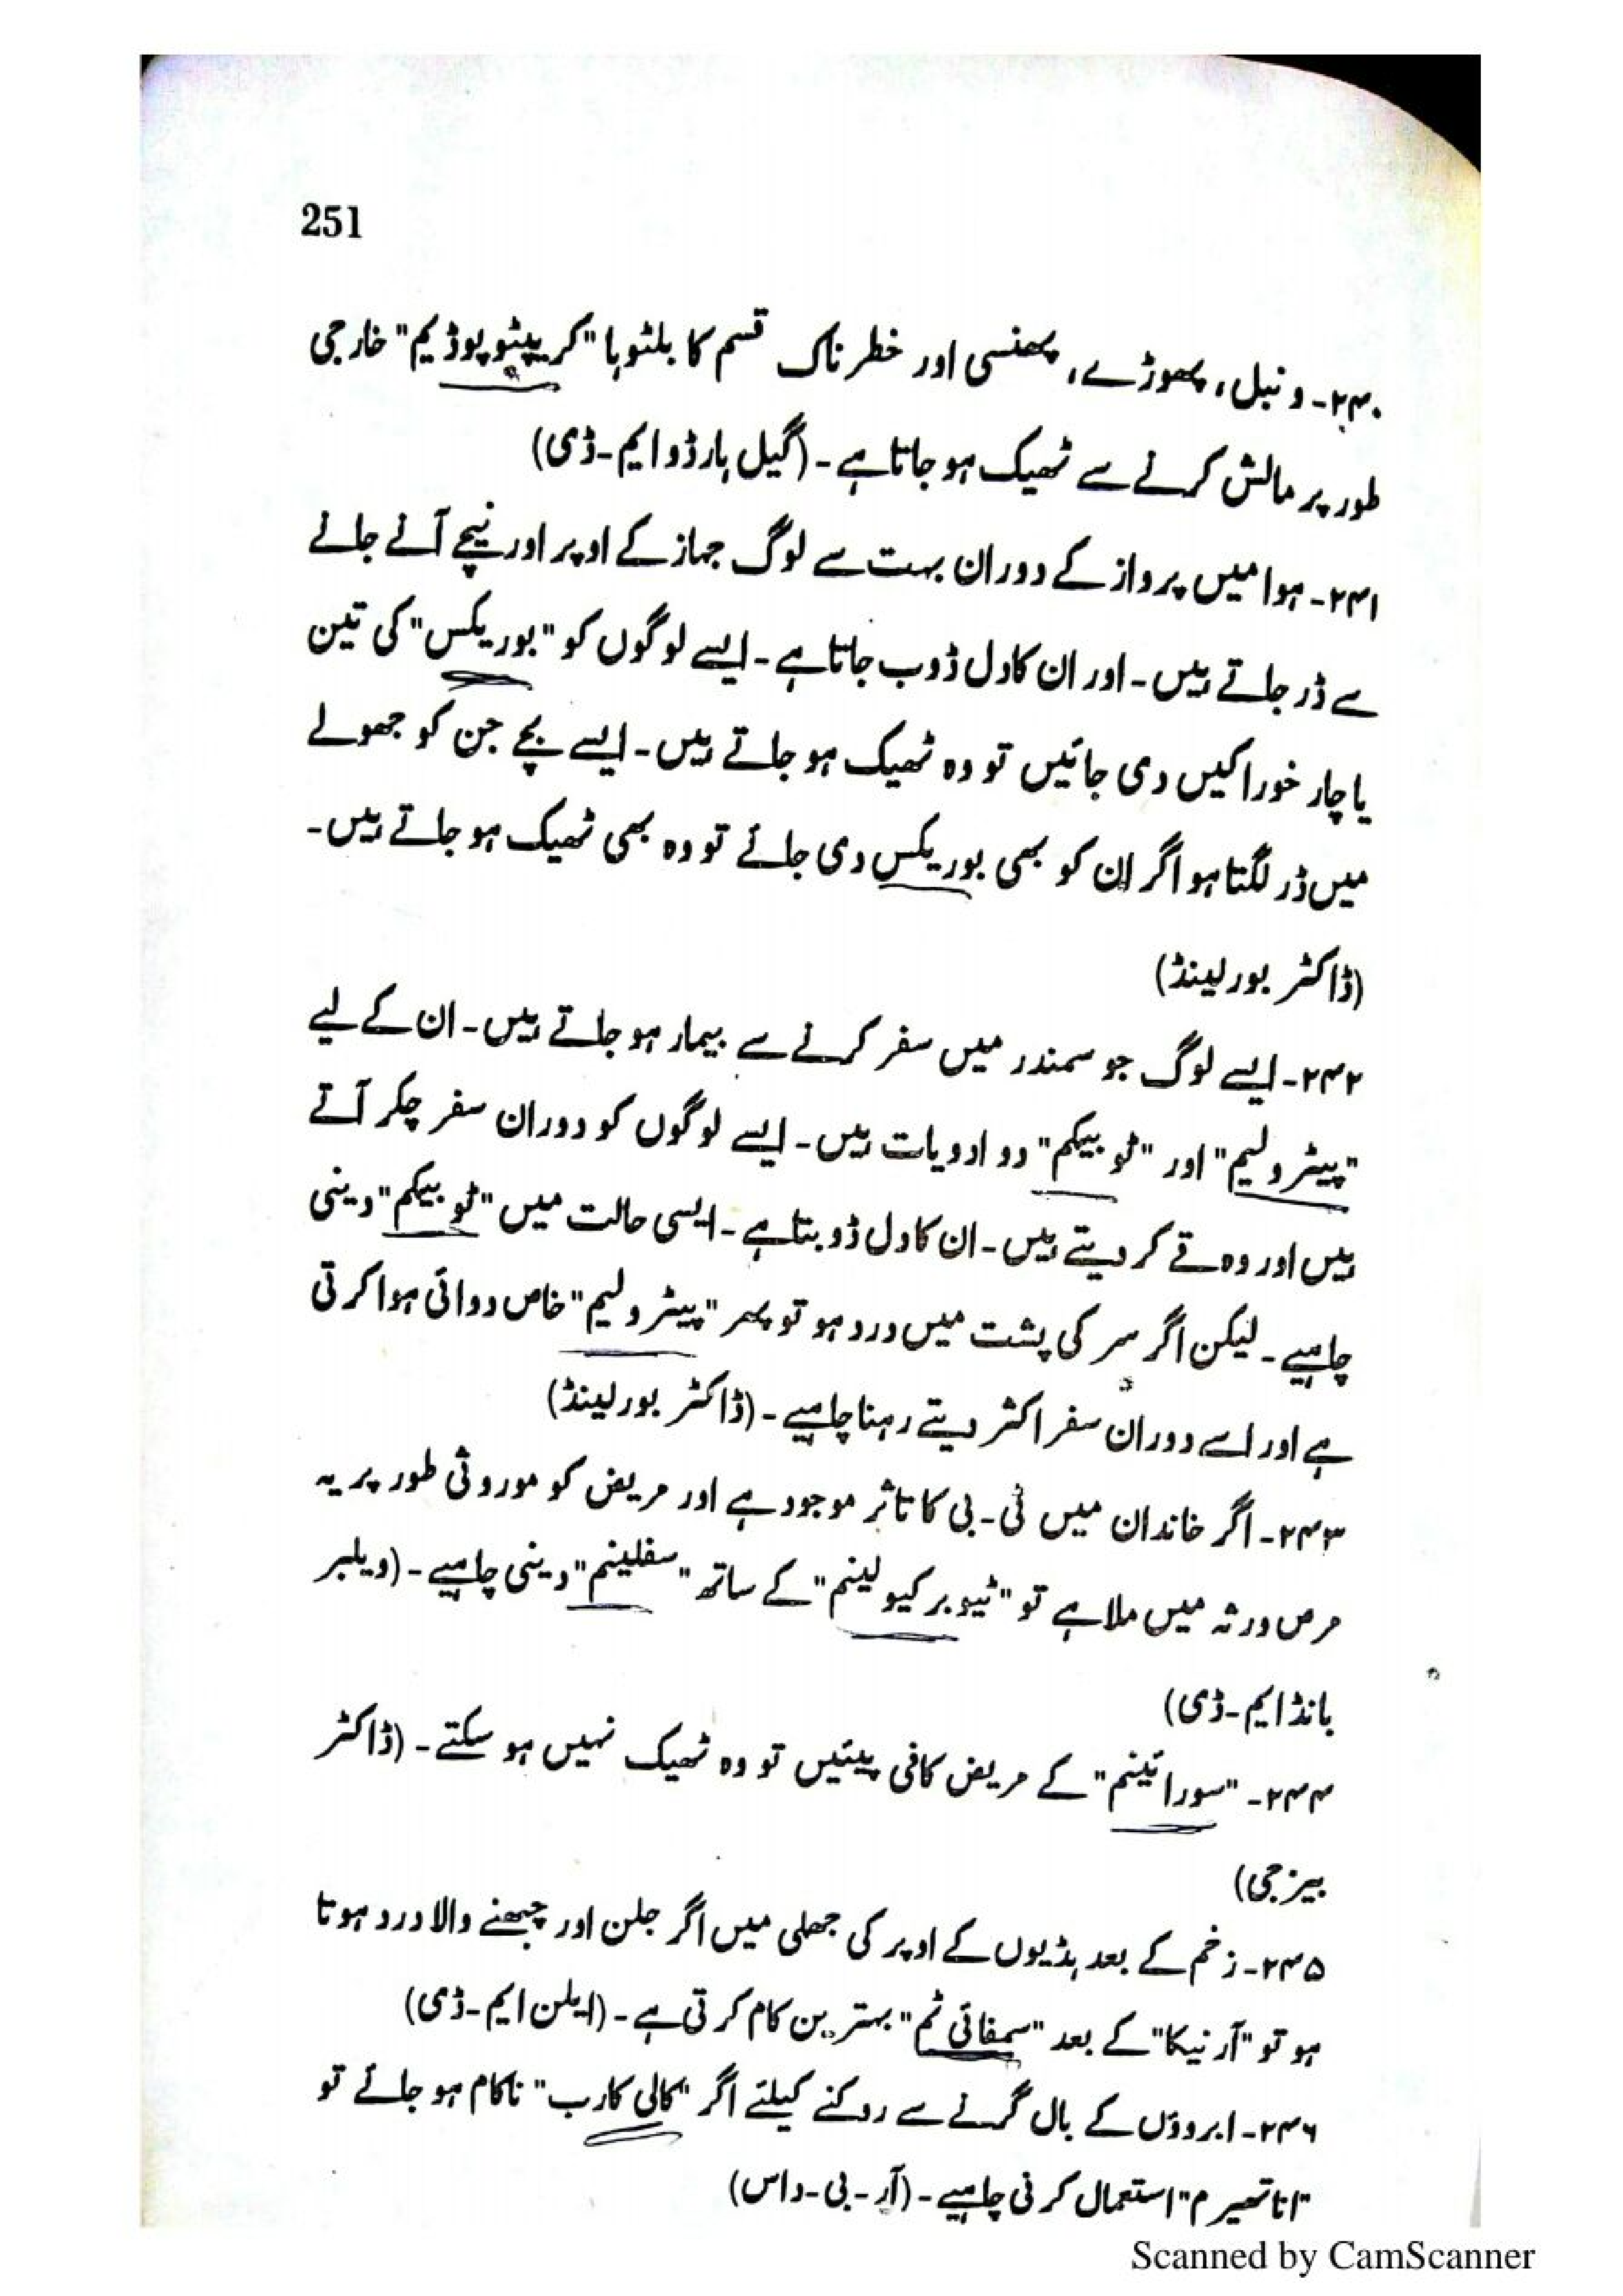 251
۲۴۰۔ و نبل، پھوڑے، پھنسی اور خطرناک قسم کا بلٹوہا "کریپٹوپوڈیم" خارجی
طور پر مالش کرنے سے ٹھیک ہو جاتا ہے۔ (گیل ہارڈو ایم۔ڈی)
۲۴۱۔ ہوا میں پرواز کے دوران بہت سے لوگ جہاز کے اوپر اور نیچے آنے جانے
سے ڈر جاتے ہیں۔ اور ان کا دل ڈوب جاتا ہے۔ ایسے لوگوں کو "بوریکس" کی تین
یا چار خوراکیں دی جائیں تو وہ ٹھیک ہو جاتے ہیں۔ ایسے بچے جن کو جھولے
میں ڈر لگتا ہو اگر ان کو بھی بوریکس دی جائے تو وہ بھی ٹھیک ہو جاتے ہیں۔
(ڈاکٹر بورلینڈ)
۲۴۲۔ ایسے لوگ جو سمندر میں سفر کرنے سے بیمار ہو جاتے ہیں۔ ان کے لیے
"پیٹرولیم" اور "ٹوبیکم" دو ادویات ہیں۔ ایسے لوگوں کو دوران سفر چکر آتے
ہیں اور وہ قے کر دیتے ہیں۔ ان کا دل ڈوبتا ہے۔ ایسی حالت میں "ٹوبیکم" دینی
چاہیے۔ لیکن اگر سر کی پشت میں درد ہو تو پھر "پیٹرولیم" خاص دوائی ہوا کرتی
ہے اور اسے دوران سفر اکثر دیتے رہنا چاہیے۔ (ڈاکٹر بورلینڈ)
۲۴۳۔ اگر خاندان میں ٹی۔بی کا تاثر موجود ہے اور مریض کو موروثی طور پر یہ
مرض ورثہ میں ملا ہے تو "ٹیوبرکیولینم" کے ساتھ "سفلینم" دینی چاہیے۔ (ویلبر
بانڈ ایم۔ڈی)
۲۴۴۔ "سورائینم" کے مریض کافی پیئیں تو وہ ٹھیک نہیں ہو سکتے۔ (ڈاکٹر
بیزجی)
۲۴۵۔ زخم کے بعد ہڈیوں کے اوپر کی جھلی میں اگر جلن اور چبھنے والا درد ہوتا
ہو تو "آرنیکا" کے بعد "سمفائی ٹم" بہترین کام کرتی ہے۔ (ایلن ایم۔ڈی)
۲۴۶۔ ابروؤں کے بال گرنے سے روکنے کیلئے اگر "کالی کارب" ناکام ہو جائے تو
"اناتھیرم" استعمال کرنی چاہیے۔ (آر۔بی۔داس)
Scanned by CamScanner